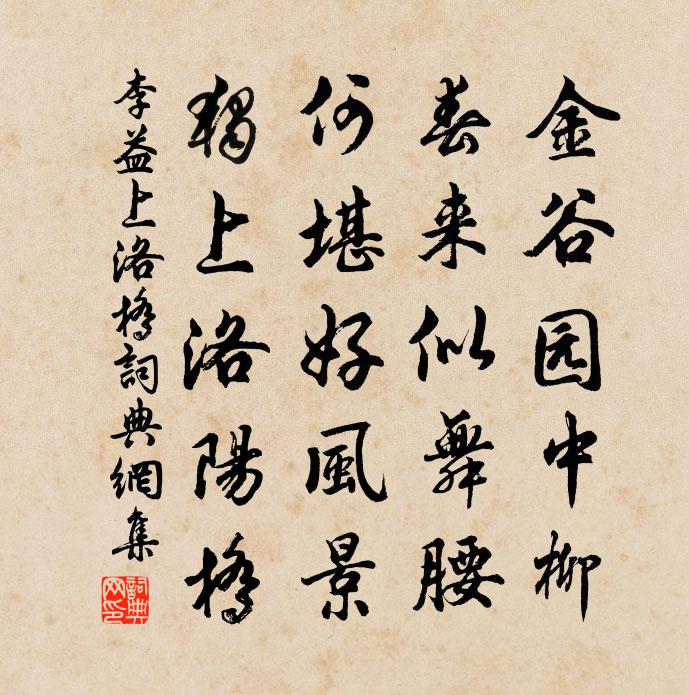 金谷园中柳
春来似舞腰
何堪好風景
獨上洛陽橋
李益上洛橋詞典網集
詞典网印